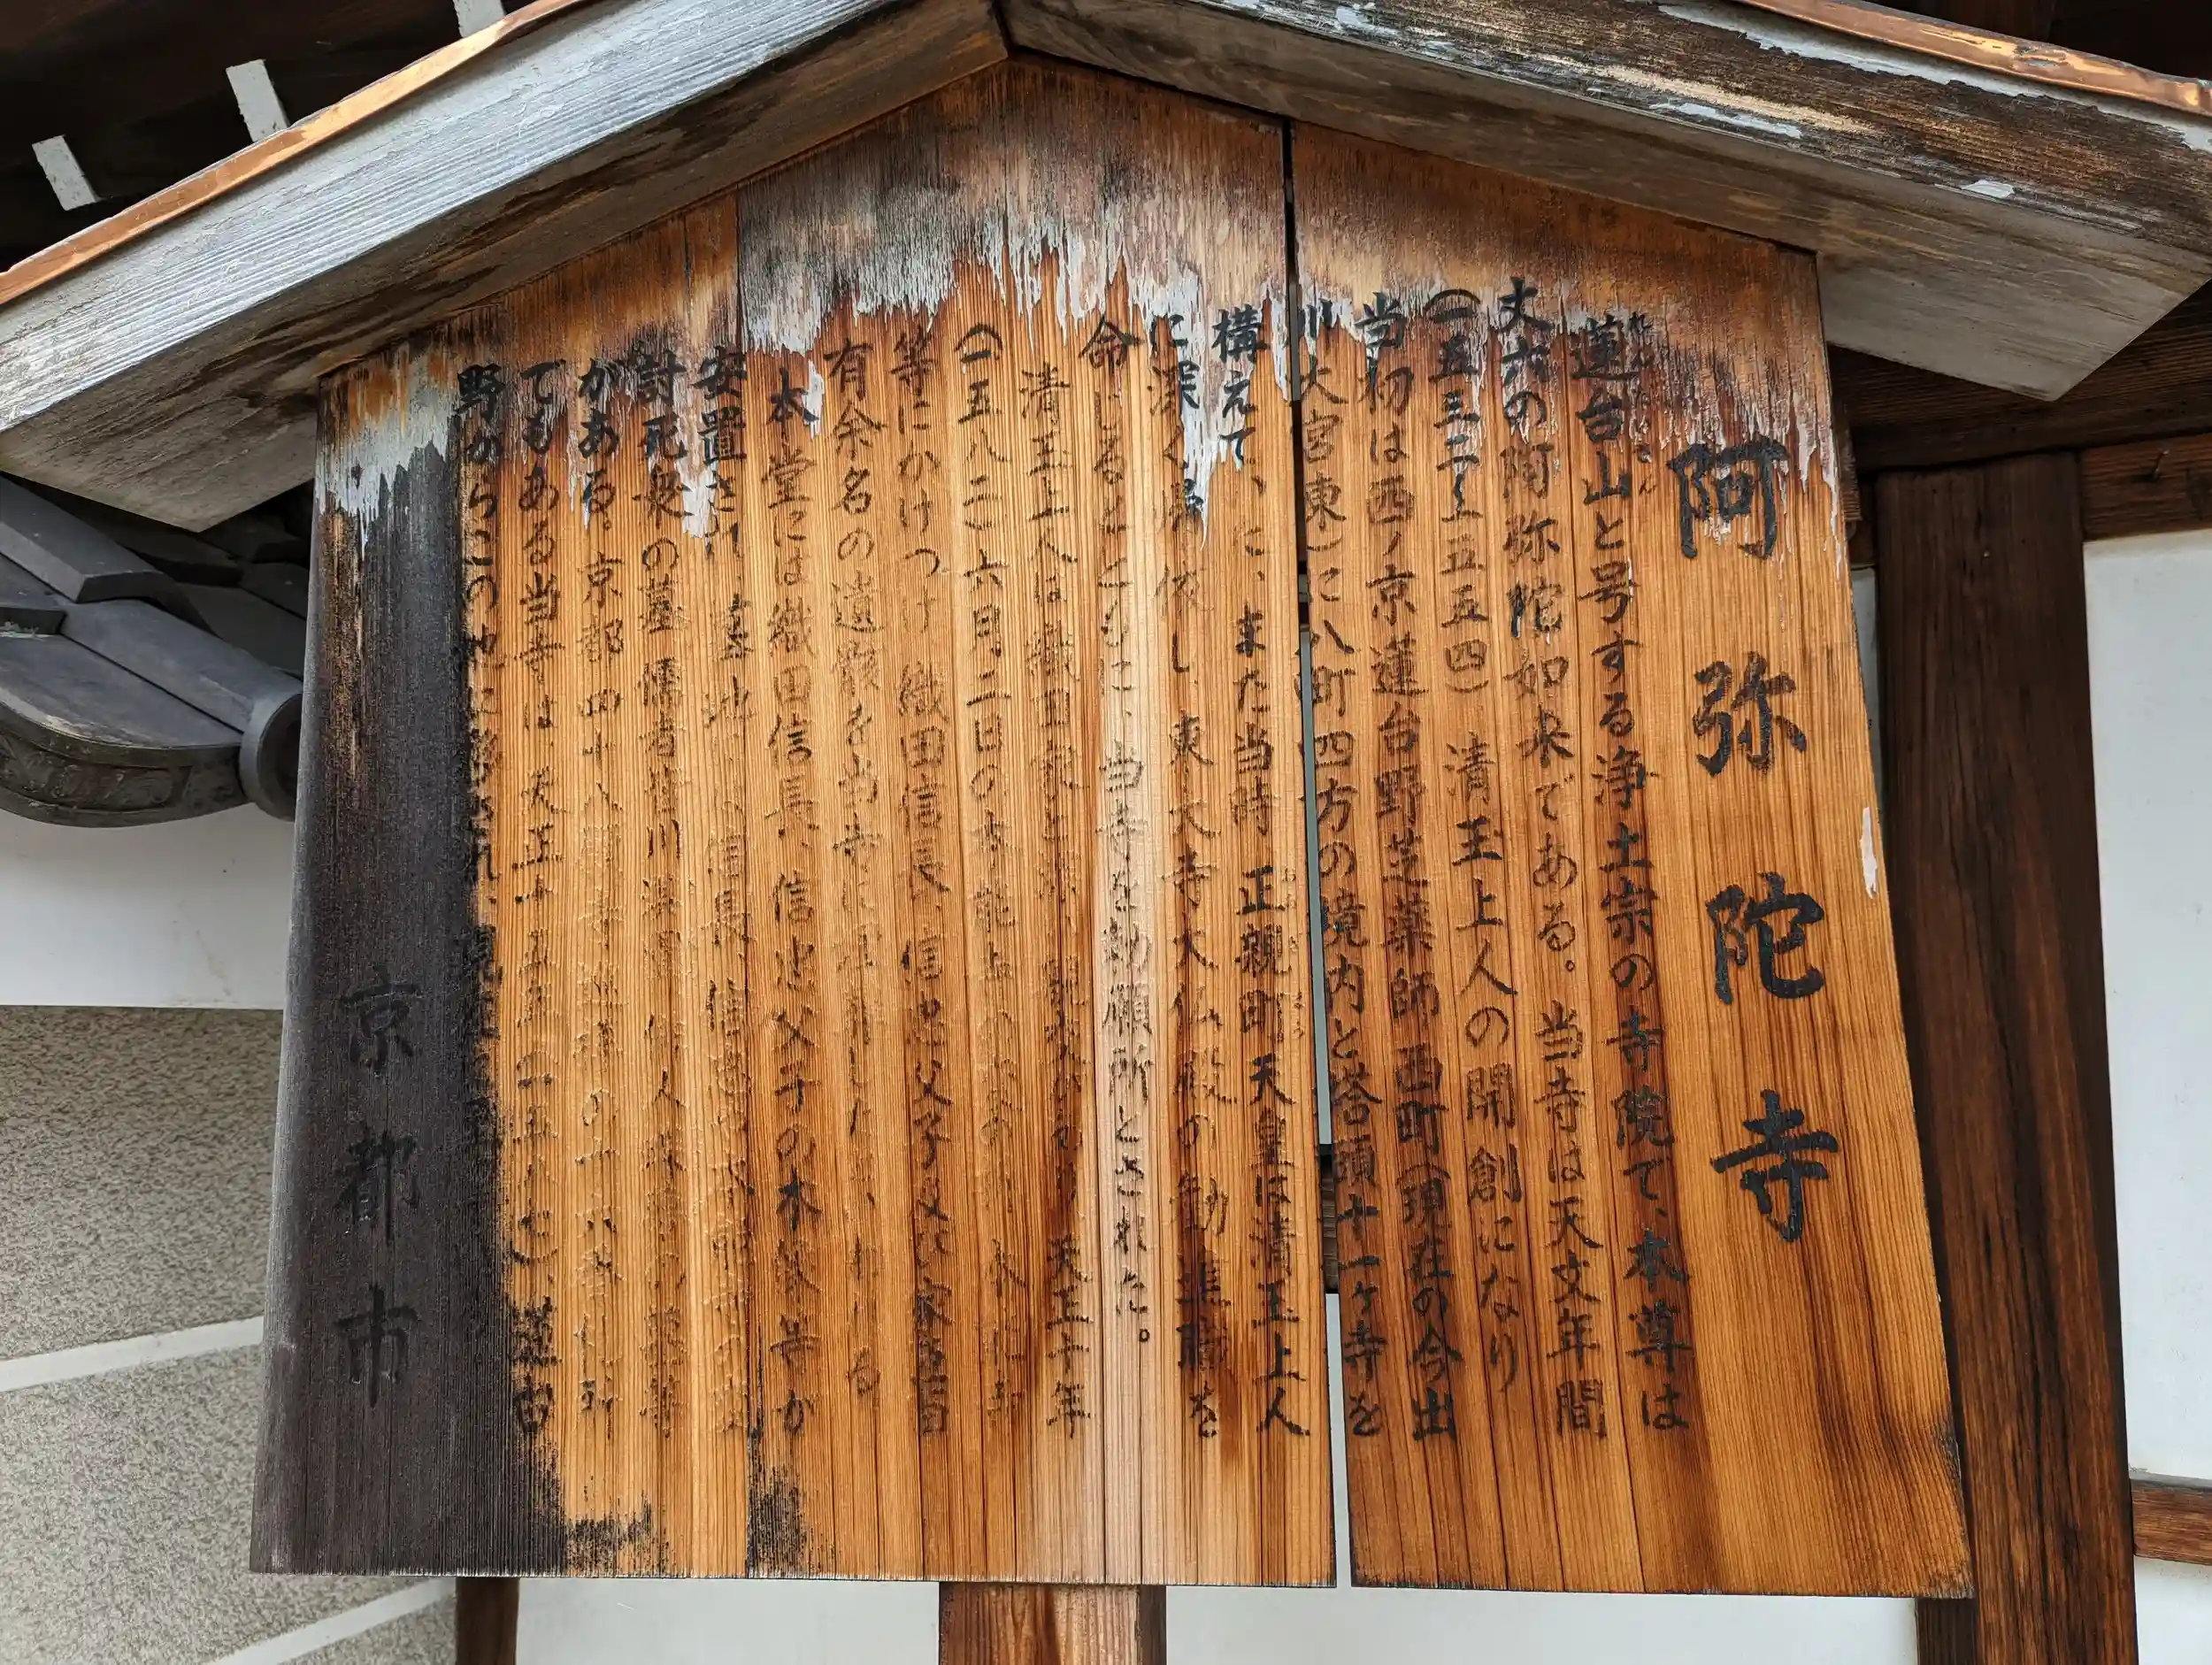 阿弥陀寺
蓮台山と号する浄土宗の寺院で、本尊は
丈六の阿弥陀如来である。当寺は天文年間
(一五三二〜一五五四)清玉上人の開創になり
当初は西ノ京蓮台野芝薬師西町(現在の今出
川大宮東)に八町四方の境内と塔頭十一ヶ寺を
構えていた。また当時、正親町天皇は清玉上人
に深く帰依し、東大寺大仏殿の勧進職を
命じるとともに、当寺を勅願所とされた。
清玉上人は織田家と 天正十年
(一五八二)六月二日の本能寺の変の 本能寺
等にかけつけ 織田信長、信忠父子 家臣百
有余名の遺骸を当寺に
本堂には織田信長、信忠父子の木像等が
安置され、墓地には信長、信忠
討死衆の墓 儒者皆川淇園、俳人
がある。京都四十八願寺
でもある当寺は、天正十五年(一五八七)、蓮台
野からこの地に移され、現在に至
京都市